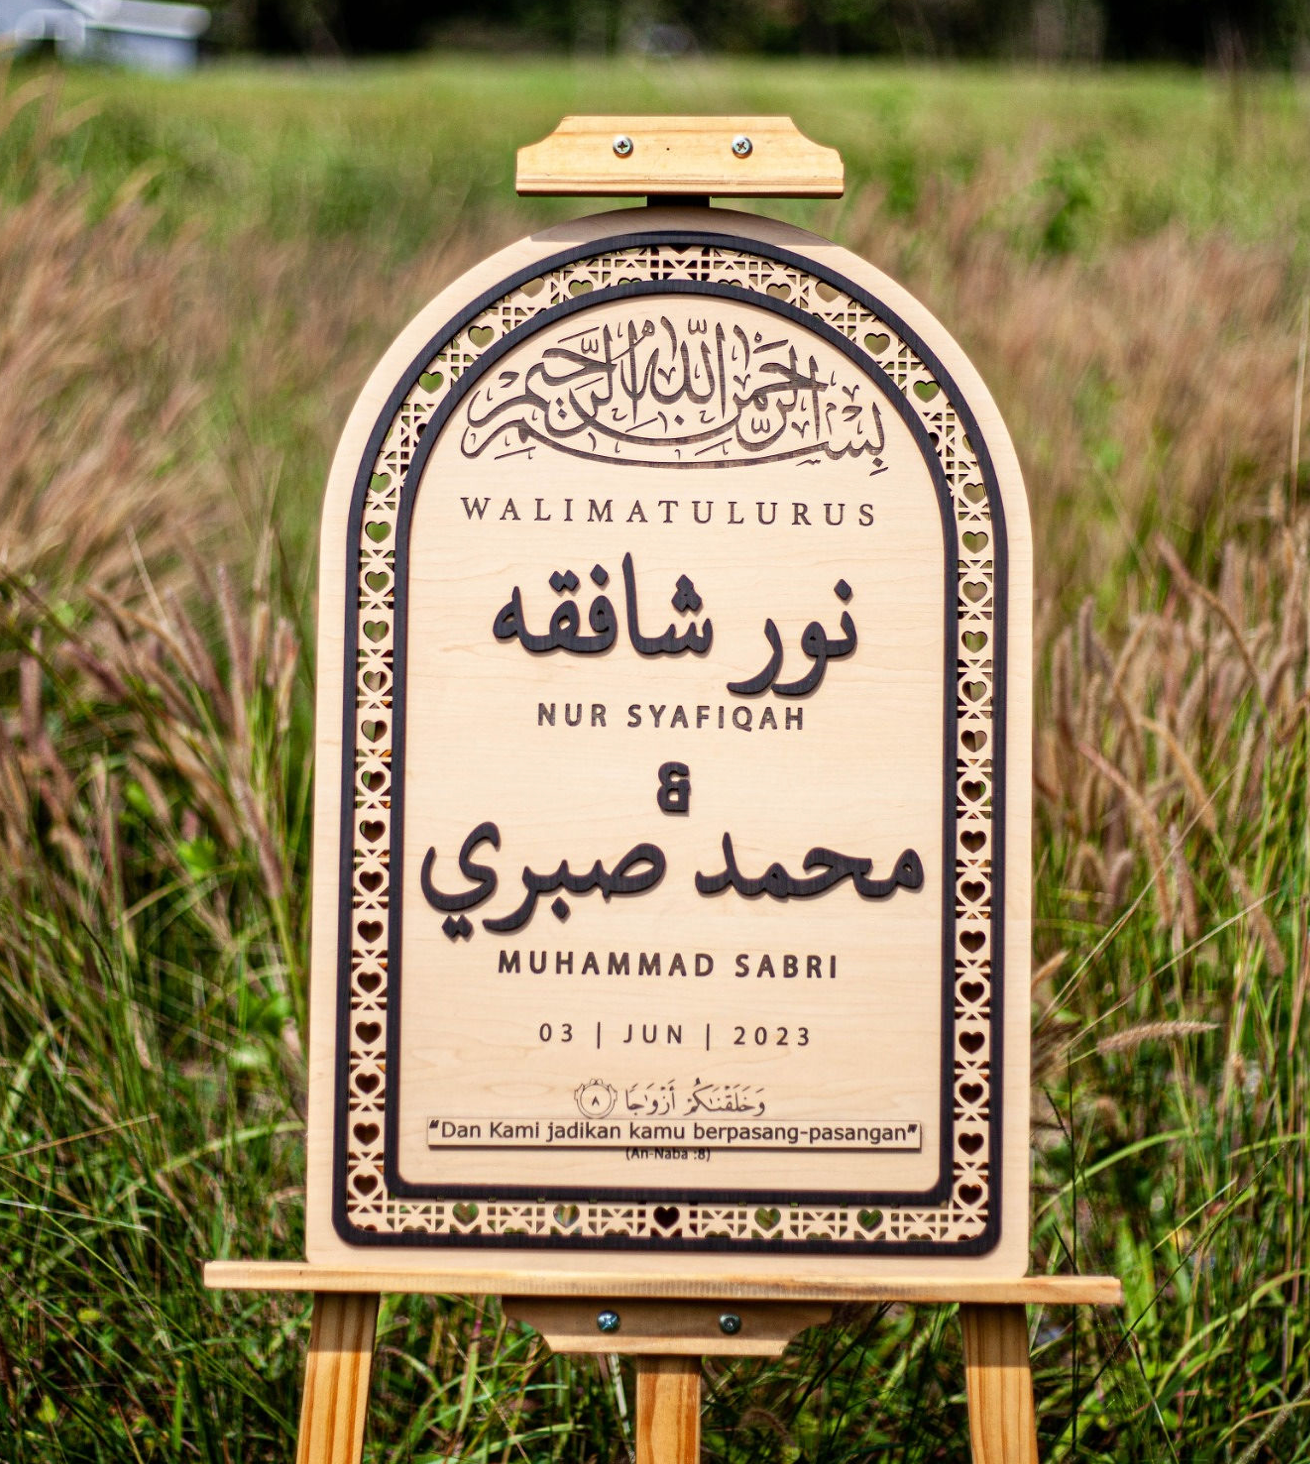 بسم الله الرحمن الرحيم
WALIMATULURUS
نور شافقه
NUR SYAFIQAH
&
محمد صبري
MUHAMMAD SABRI
03 | JUN | 2023
وَخَلَقْنَٰكُمْ أَزْوَٰجًا ٨
“Dan Kami jadikan kamu berpasang-pasangan”
(An-Naba :8)